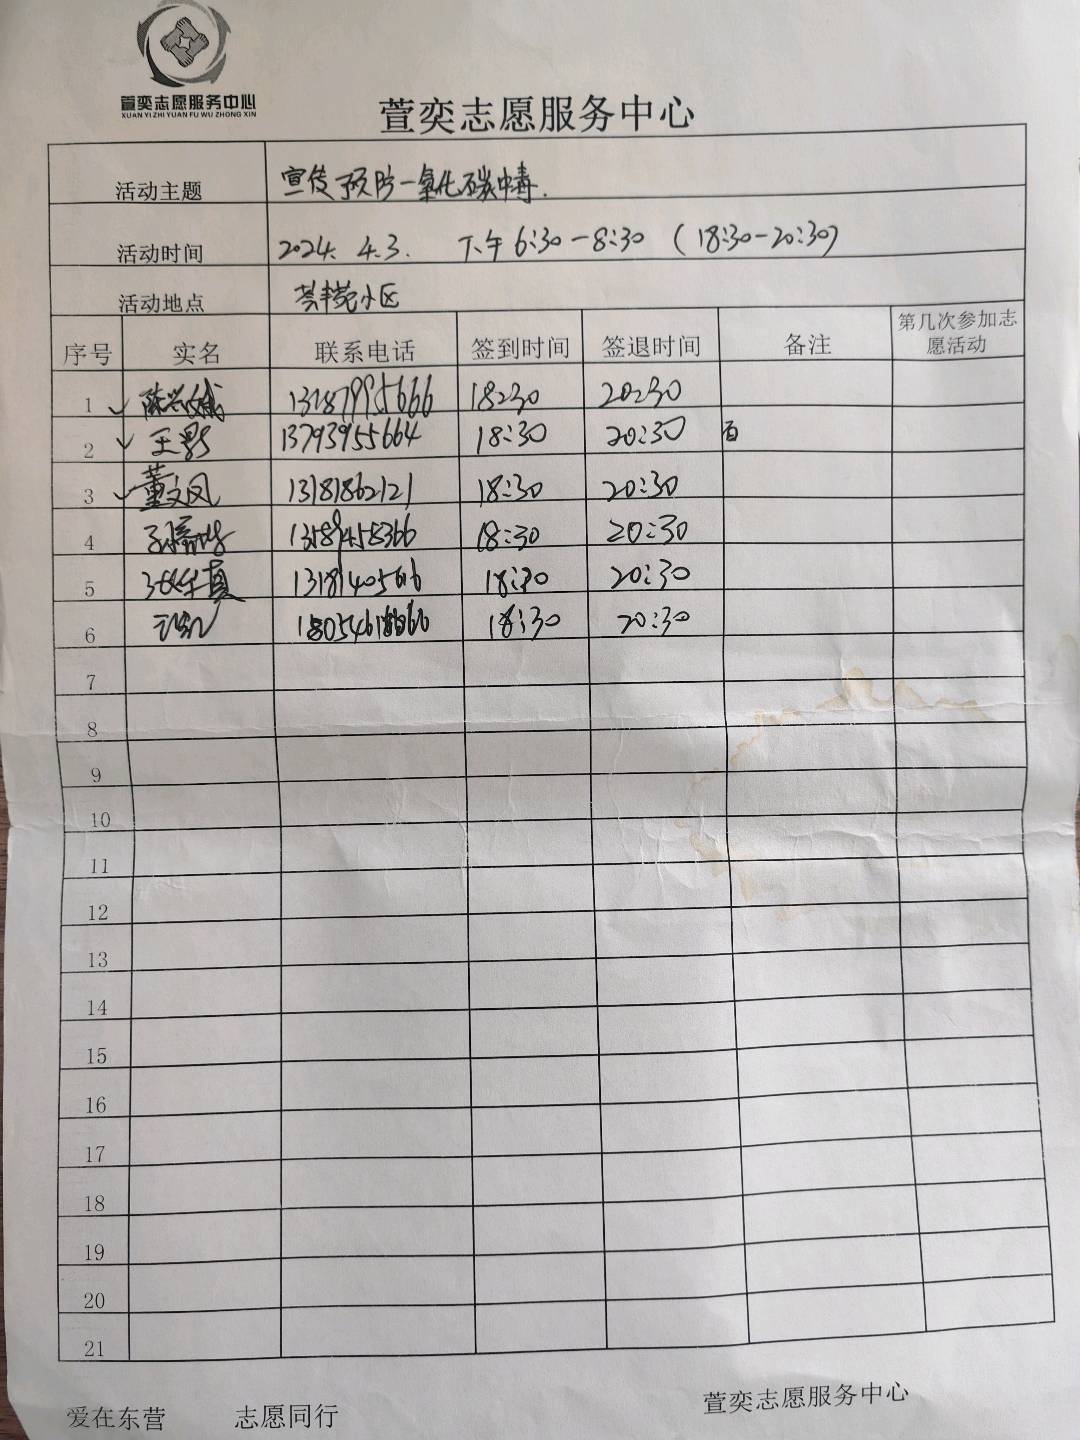 萱奕志愿服务中心
XUAN YI ZHI YUAN FU WU ZHONG XIN
萱奕志愿服务中心
活动主题 宣传预防一氧化碳中毒.
活动时间 2024. 4.3. 下午6:30-8:30 (18:30-20:30)
活动地点 苑小区
序号 实名 联系电话 签到时间 签退时间 备注 第几次参加志愿活动
1 ✓ 陈兴 13287995666 18:30 20:30
2 ✓ 王 13793955664 18:30 20:30
3 ✓ 董文凤 13181862121 18:30 20:30
4 孙 13589458366 18:30 20:30
5 18:30 20:30
6 18:30 20:30
7
8
9
10
11
12
13
14
15
16
17
18
19
20
21
爱在东营 志愿同行 萱奕志愿服务中心